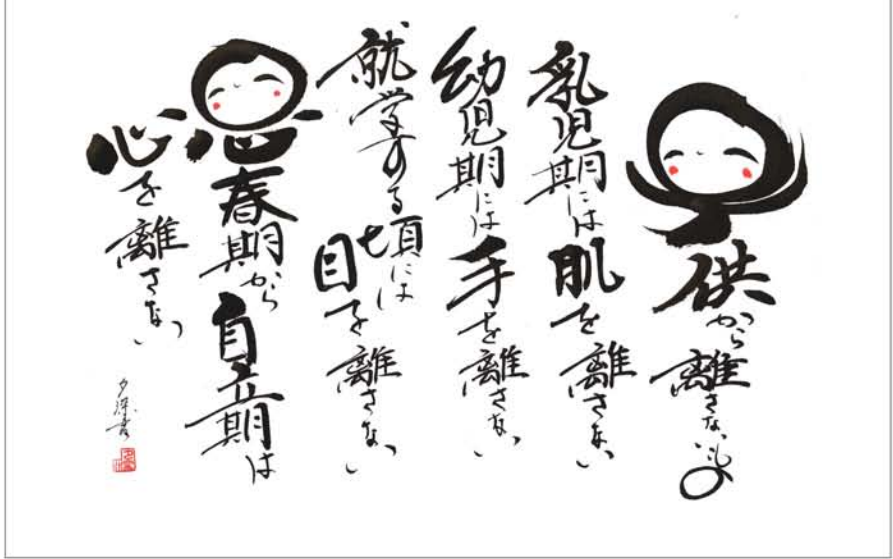 子供から離さないもの
乳児期には肌を離さない
幼児期には手を離さない
就学する頃には
目を離さない
思春期から自立期は
心を離さない